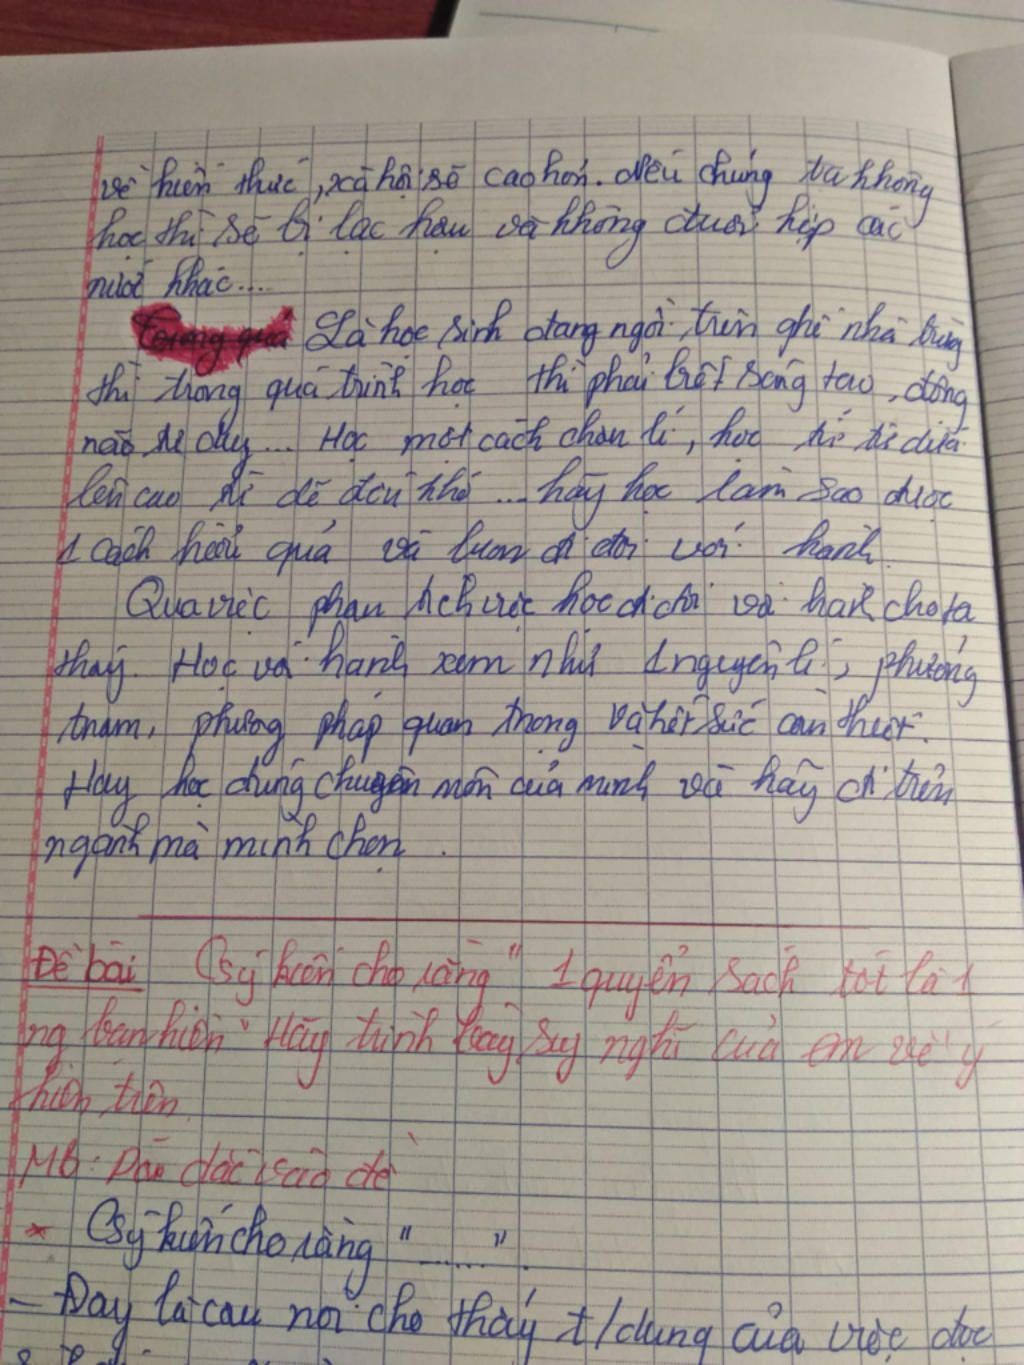 về hiện thực, xã hội sẽ cao hơn. Nếu chúng ta không
học thì sẽ bị lạc hậu và không đuổi kịp các
nước khác....
Là học sinh đang ngồi trên ghế nhà trường
thì trong quá trình học thì phải biết sáng tạo, động
não tư duy... Học một cách chân lí, học từ từ đi
lên cao từ dễ đến khó ... hãy học làm sao được
1 cách hiệu quả và luôn đi đôi với hành.
Qua việc phân tích việc học đi đôi với hành cho ta
thấy. Học và hành xem như 1 nguyên lí, phương
trâm, phương pháp quan trọng và hết sức cần thiết.
Hãy học đúng chuyên môn của mình và hãy đi trên
ngành mà mình chọn.
Đề bài Có ý kiến cho rằng " 1 quyển sách tốt là 1
ng bạn hiền" Hãy trình bày suy nghĩ của em về ý
kiến trên.
MB: Dẫn dắt vấn đề
* Có ý kiến cho rằng " ....... ".
- Đây là câu nói cho thấy t/dụng của việc đọc